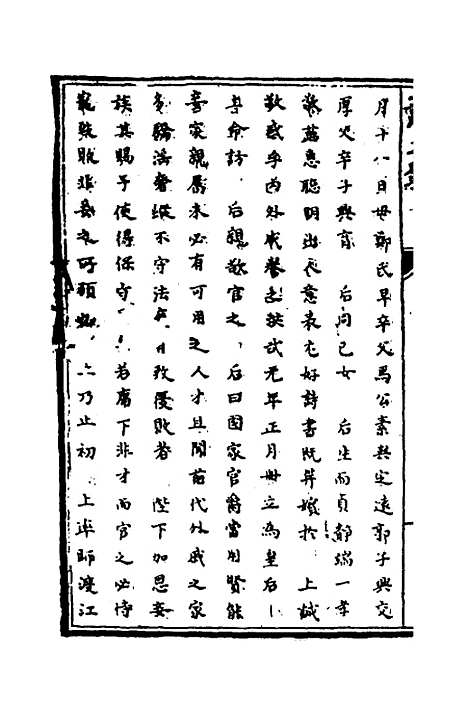 月十八日母鄭氏早卒父馬公素與定遠郭子興交
厚父卒子興育 后同己女 后生而貞靜端一孝
敬慈惠聰明出人意表尤好詩書既笄嬪於 上誠
敬感孚內外咸譽之洪武元年正月冊立為皇后上
命訪 后親欲官之 后曰國家官爵當用賢能
妾家親屬未必有可用之人才且聞前代外戚之家
多驕淫奢縱不守法 致覆敗者 陛下加恩妾
族其賜予使得保守 若庸下非才而官之必恃
寵致敗非妾之所願也 上乃止初 上率師渡江